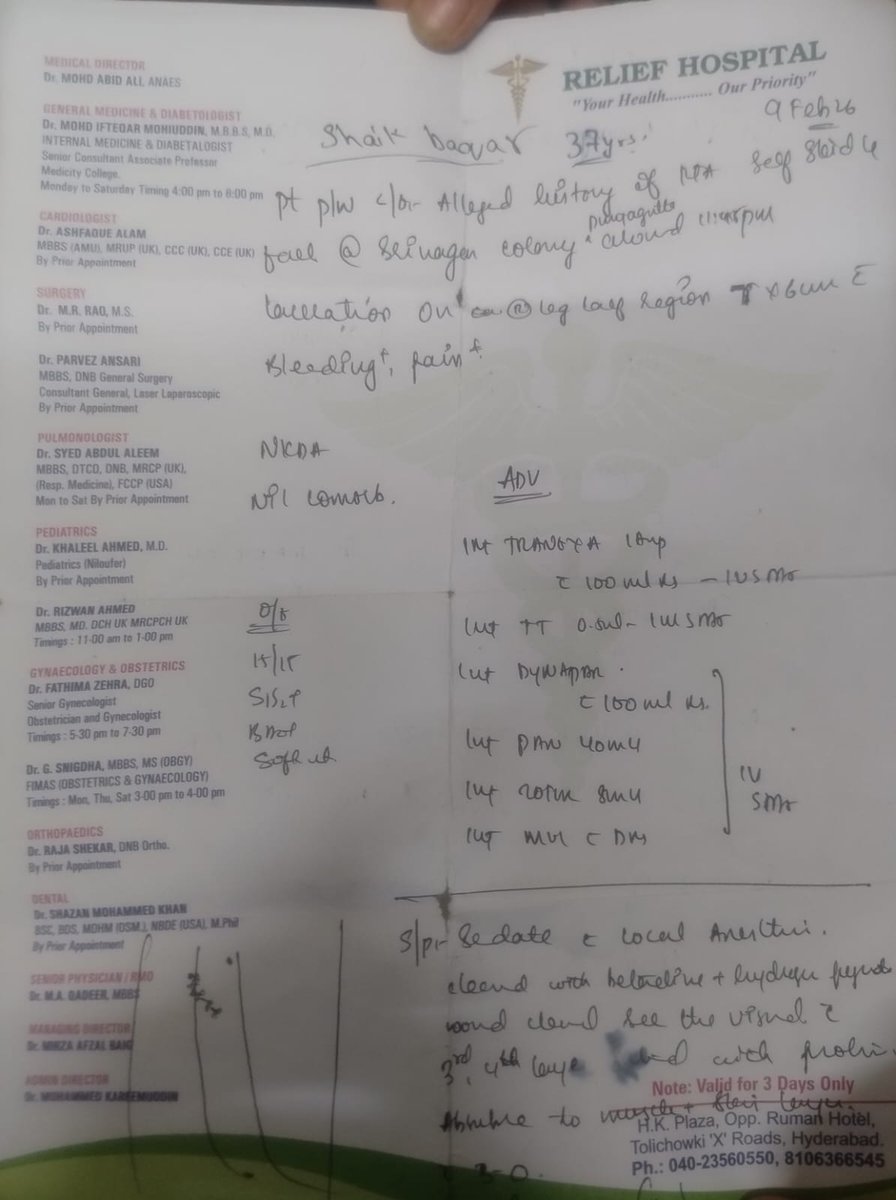 MEDICAL DIRECTOR
Dr. MOHD ABID ALI, ANAES
RELIEF HOSPITAL
"Your Health........... Our Priority"
9 Feb 26
GENERAL MEDICINE & DIABETOLOGIST
Dr. MOHD IFTEQAR MOHIUDDIN, M.B.B.S, M.D.
INTERNAL MEDICINE & DIABETALOGIST
Senior Consultant Associate Professor
Medicity College.
Monday to Saturday Timing 4:00 pm to 8:00 pm
CARDIOLOGIST
Dr. ASHFAQUE ALAM
MBBS (AMU), MRUP (UK), CCC (UK), CCE (UK)
By Prior Appointment
SURGERY
Dr. M.R. RAO, M.S.
By Prior Appointment
Dr. PARVEZ ANSARI
MBBS, DNB General Surgery
Consultant General, Laser Laparoscopic
By Prior Appointment
PULMONOLOGIST
Dr. SYED ABDUL ALEEM
MBBS, DTCD, DNB, MRCP (UK),
(Resp. Medicine), FCCP (USA)
Mon to Sat By Prior Appointment
PEDIATRICS
Dr. KHALEEL AHMED, M.D.
Pediatrics (Niloufer)
By Prior Appointment
Dr. RIZWAN AHMED
MBBS, MD. DCH UK MRCPCH UK
Timings : 11-00 am to 1-00 pm
GYNAECOLOGY & OBSTETRICS
Dr. FATHIMA ZEHRA, DGO
Senior Gynecologist
Obstetrician and Gynecologist
Timings : 5-30 pm to 7-30 pm
Dr. G. SNIGDHA, MBBS, MS (OBGY)
FIMAS (OBSTETRICS & GYNAECOLOGY)
Timings : Mon, Thu, Sat 3-00 pm to 4-00 pm
ORTHOPAEDICS
Dr. RAJA SHEKAR, DNB Ortho.
By Prior Appointment
DENTAL
Dr. SHAZAN MOHAMMED KHAN
BSC, BDS, MDHM (OSM.), NBDE (USA), M.Phil
By Prior Appointment
SENIOR PHYSICIAN / RMO
Dr. M.A. QADEER, MBBS
MANAGING DIRECTOR
Dr. MIRZA AFZAL BAIG
ADMIN DIRECTOR
Dr. MOHAMMED KAREEMUDDIN
Shaik baqar 37yrs.
pt p/w c/o- Alleged history of RTA self skid &
fall @ Srinagar colony
Laceration on (R) leg calf region
Bleeding+, pain+.
NKDA
Nil comorb.
ADV
Inj TRANEXA 1amp
c 100ml NS - IV STAT
Inj TT 0.5ml- IM STAT
Inj DYNAPAR
c 100ml NS.
Inj PAN 40mg
Inj ZOFER 8mg
Inj MVI c DNS
IV
STAT
O/E
15/15
S1S2+
Soft
Local
with betadine + hydrogen
wound see the
3rd, 4th with
to muscle + layer.
3-0.
Note: Valid for 3 Days Only
H.K. Plaza, Opp. Ruman Hotel,
Tolichowki 'X' Roads, Hyderabad.
Ph.: 040-23560550, 8106366545